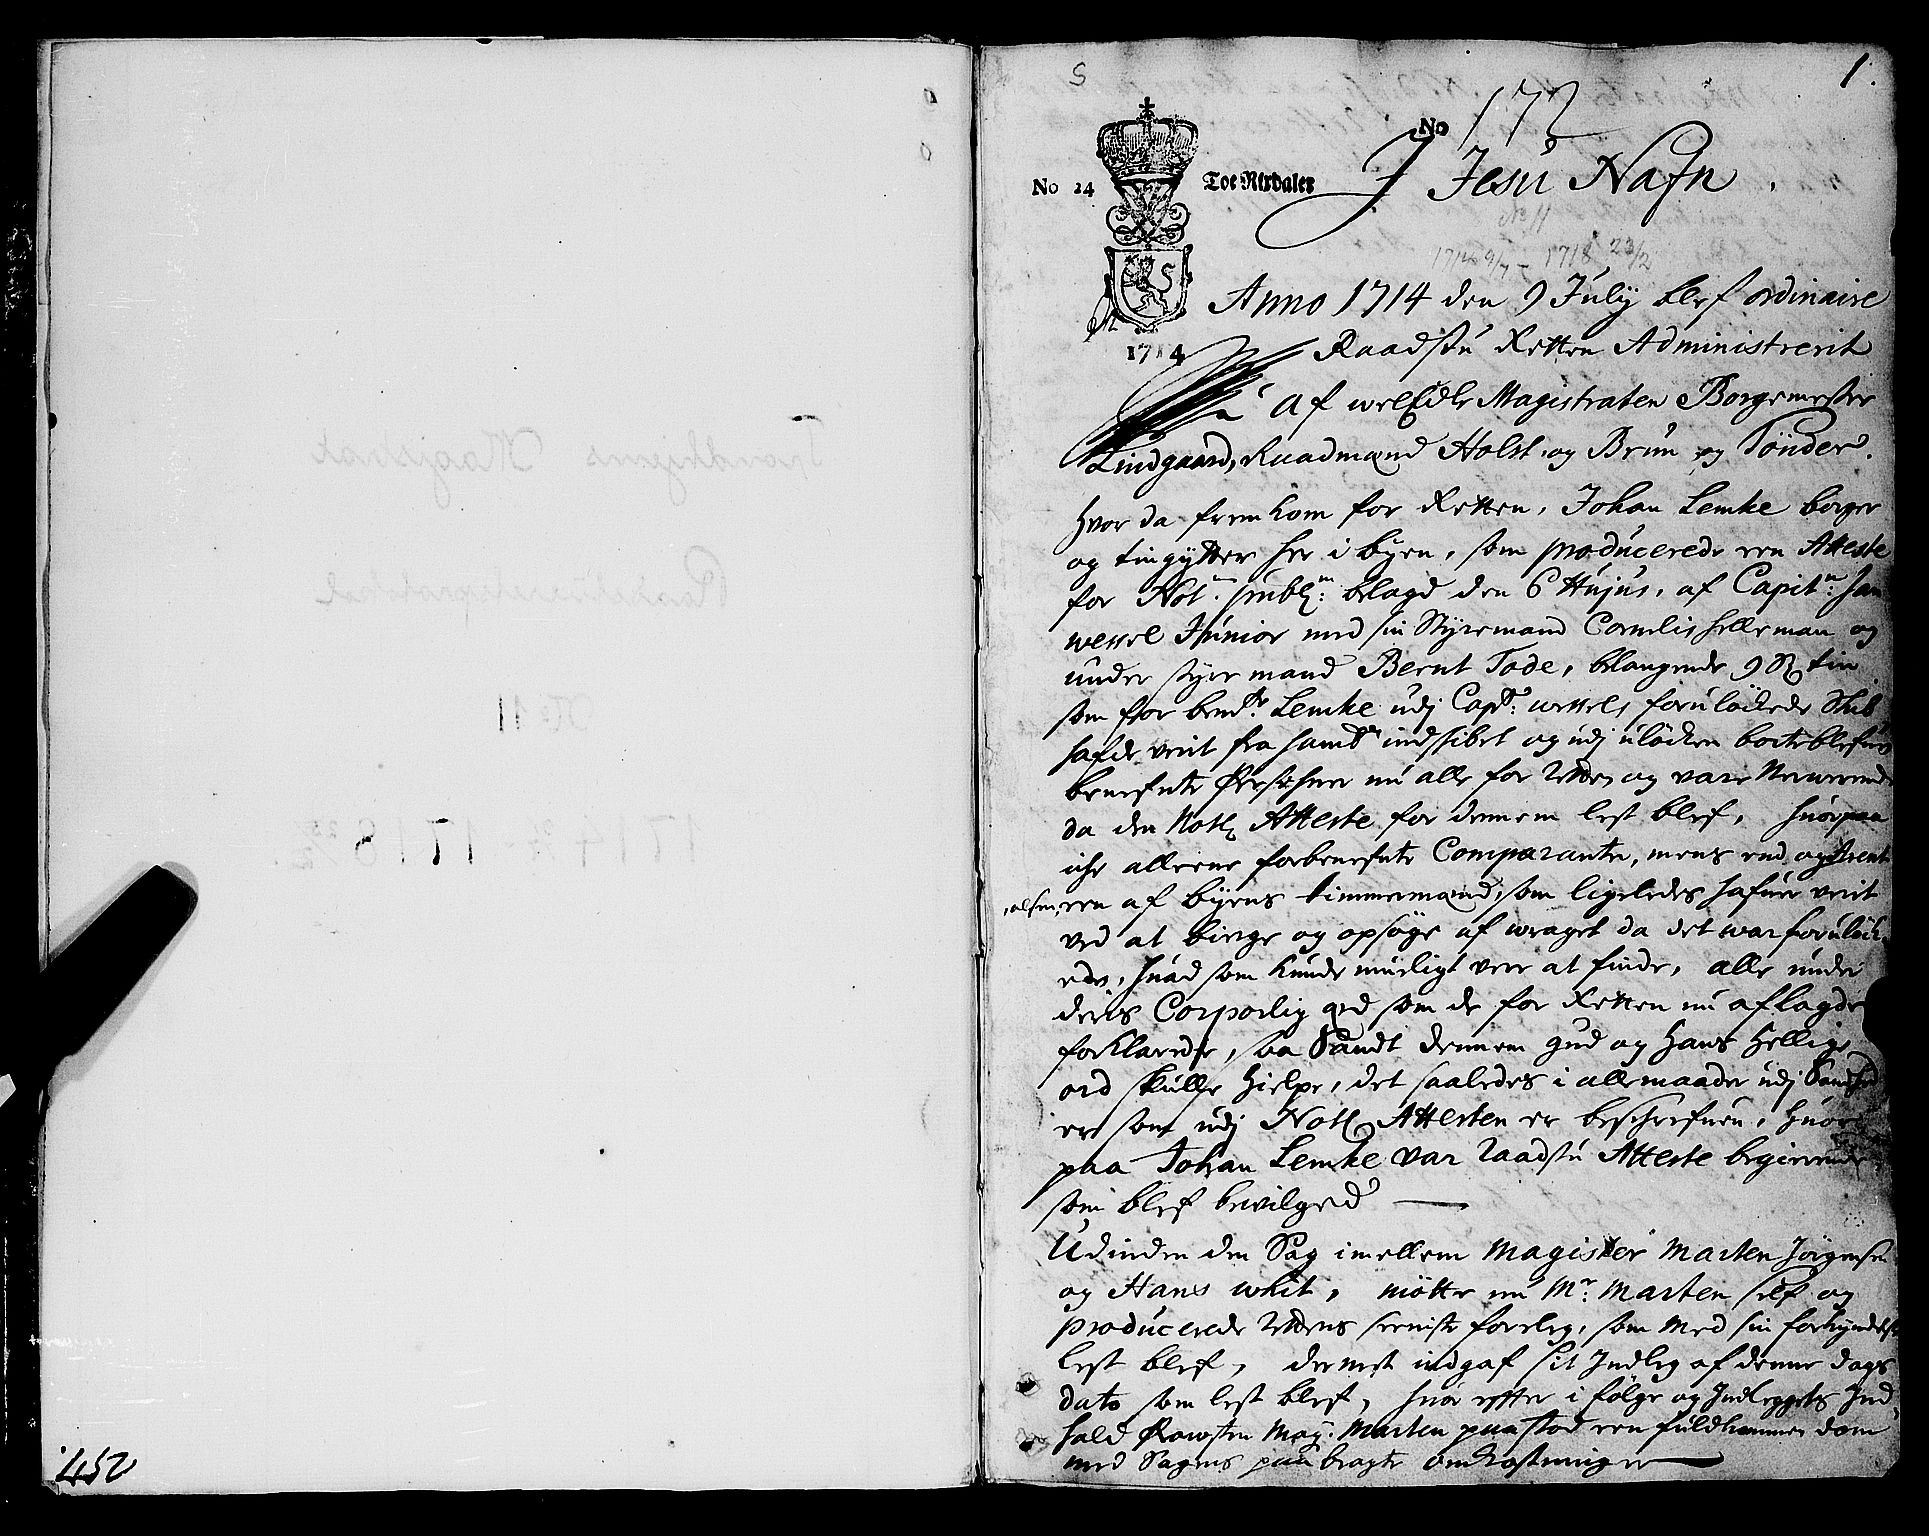 1.
S
No 172
No 24 Toe Rixdaler
I Jesu Nafn.
No 11
1714 9/7 - 1718 23/2
1714
Anno 1714 den 9 July blef ordinaire
Raadstu Retten Administrerit
af welEdle Magistraten Borgemester
Lindgaard, Raadmænd Holst og Brun og Tønder.
Hvor da fremkom for Retten, Johan Lemke borger
og tingytter her i byen, som producerede een Atteste
for Not: publ: belagd den 6 Hujus, af Capit: Jan
Wessel Junior med sin Styrmand Cornelis Helleman og
under styrmand Bernt Tode, belangende 9 tin
som for bemte Lemke udj Capt: Wessels forulökede Skib
hafde verit fra hamb indskibet og udj ulöcken borteblefven
benefnte Persohner nu alle for Retten og vare Nerverende
da den Notl Atteste for dennem lest blef, huorpaa
iche alleene forbenefnte Comparanter, mens end og Arent
olsen, een af byens timmermænd, som ligeledes hafuer verit
ved at bierge og opsöge af wraget da det war foruløck-
ede, huad som kunde mueligt vere at finde, alle under
deris Corporlig eed som de for Retten nu aflagde
forklarede, saa Sandt dennem gud og Hans Hellige
ord skulle hielpe, det saaledes i allemaader udj Sandhed
er som udj Notl Attesten er beskrefuen, huor
paa Johan Lemke var Raadstu Atteste begierende
som blef bevilged
Udinden den Sag imellem Magister Marten Jörgensen
og Hans Whit, mötte nu Mr: Marten self og
producerede Rettens seeniste foreleg, som med sin forkyndelse
lest blef, dernest indgaf sit Indleg af denne dags
dato som lest blef, huor effter i fölge og Indleggets Ind-
hold Provsten Mag: Marten paastod een fuldkommen dom
med Sagens paabragte omkostninger
452